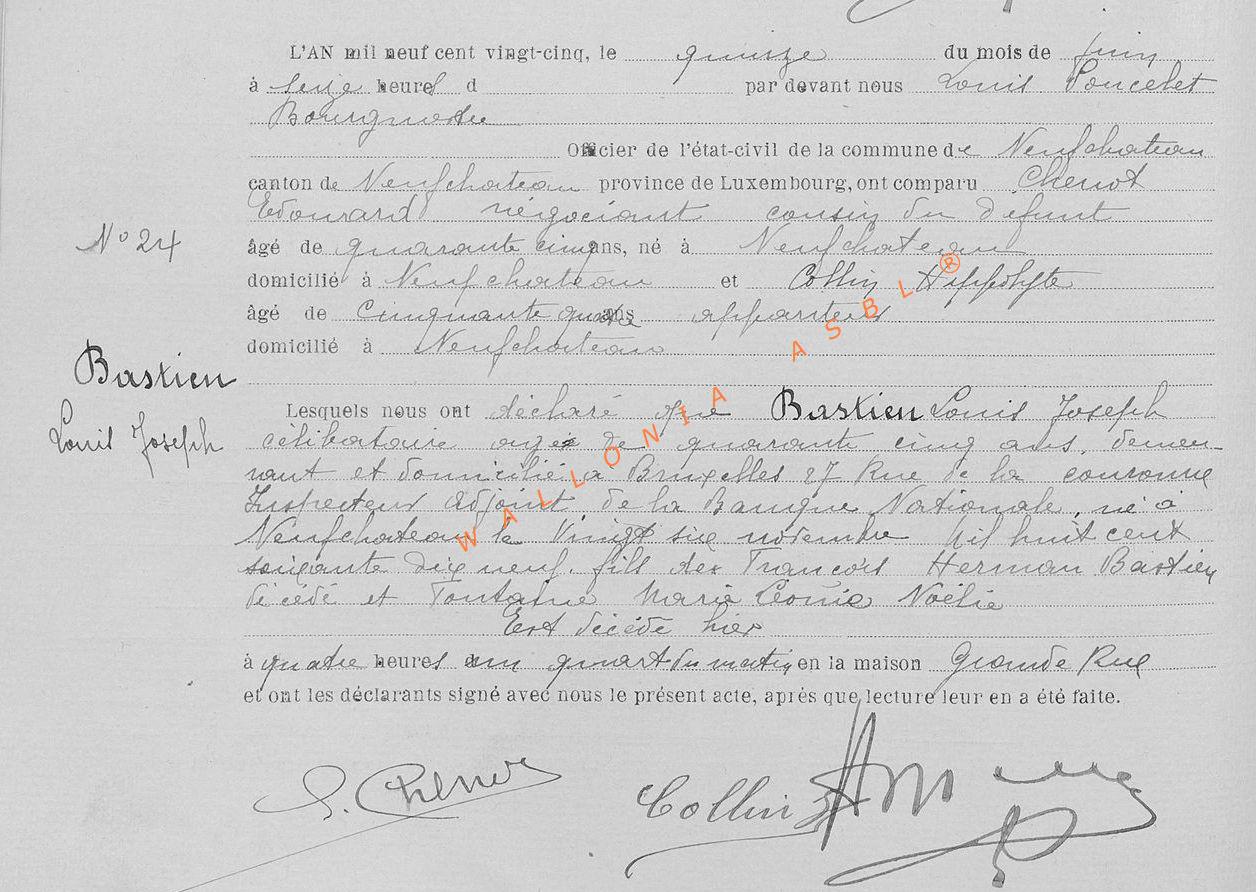 L'AN mil neuf cent vingt-cinq, le quinze du mois de juin
à seize heures d par devant nous Louis Poncelet
Bourgmestre
Officier de l'état-civil de la commune de Neufchateau
canton de Neufchateau province de Luxembourg, ont comparu Chenot
Edouard négociant cousin du défunt
N° 24
âgé de quarante cinq ans, né à Neufchateau
domicilié à Neufchateau et Collin Hippolyte
âgé de cinquante quatre ans appariteur
domicilié à Neufchateau
Bastien
Louis Joseph
Lesquels nous ont déclaré que Bastien Louis Joseph
célibataire agé de quarante cinq ans, demeu-
rant et domicilié à Bruxelles 27 Rue de la couronne
Inspecteur adjoint de la Banque Nationale, né à
Neufchateau le vingt six novembre mil huit cent
soixante dix neuf. fils de François Herman Bastien
décédé et Fontaine Marie Léonie Noëlie
Est décédé hier
à quatre heures un quart du matin en la maison Grande Rue
et ont les déclarants signé avec nous le présent acte, après que lecture leur en a été faite.
E. Chenot Collin H
WALLONIA ASBL ®